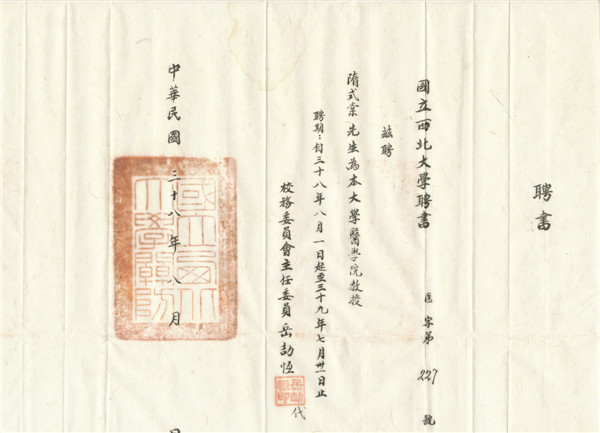 聘書
國立西北大學聘書 醫字第 227 號
茲聘
隋式棠先生為本大學醫學院教授
聘期：自三十八年八月一日起至三十九年七月卅一日止
校務委員會主任委員 岳劼恆 代
岳劼恆印
中華民國 三十八 年 八 月 日
國立西北大學關防